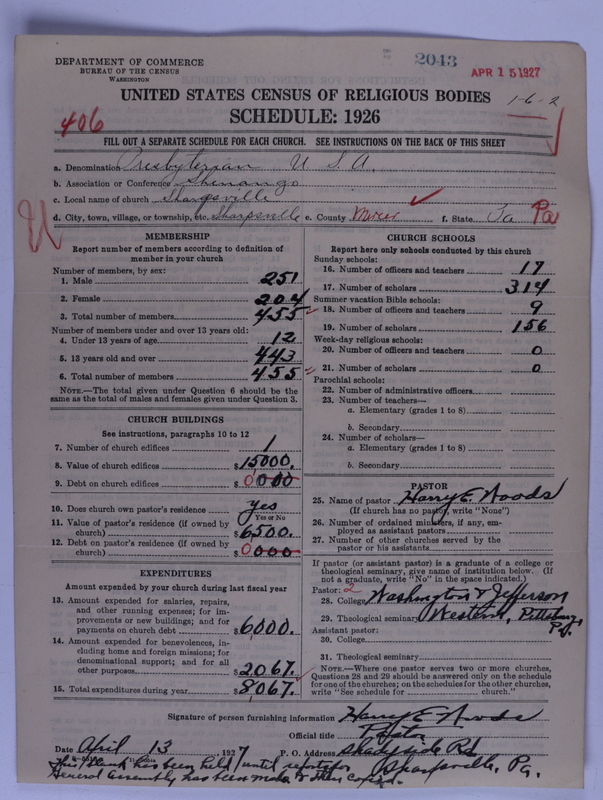 DEPARTMENT OF COMMERCE
BUREAU OF THE CENSUS
WASHINGTON
2043
APR 15 1927
UNITED STATES CENSUS OF RELIGIOUS BODIES
1-6-2
SCHEDULE: 1926
406
FILL OUT A SEPARATE SCHEDULE FOR EACH CHURCH. SEE INSTRUCTIONS ON THE BACK OF THIS SHEET
a. Denomination Presbyterian U.S.A.
b. Association or Conference Shenango
c. Local name of church Sharpsville
d. City, town, village, or township, etc. Sharpsville e. County Mercer f. State Pa Pa
MEMBERSHIP
Report number of members according to definition of member in your church
Number of members, by sex:
1. Male 251
2. Female 204
3. Total number of members 455
Number of members under and over 13 years old:
4. Under 13 years of age 12
5. 13 years old and over 443
6. Total number of members 455
NOTE.—The total given under Question 6 should be the same as the total of males and females given under Question 3.
CHURCH BUILDINGS
See instructions, paragraphs 10 to 12
7. Number of church edifices 1
8. Value of church edifices $15000.
9. Debt on church edifices $0000
10. Does church own pastor's residence yes
Yes or No
11. Value of pastor's residence (if owned by church) $6500.
12. Debt on pastor's residence (if owned by church) $0000
EXPENDITURES
Amount expended by your church during last fiscal year
13. Amount expended for salaries, repairs, and other running expenses; for improvements or new buildings; and for payments on church debt $6000.
14. Amount expended for benevolences, including home and foreign missions; for denominational support; and for all other purposes $2067.
15. Total expenditures during year $8,067.
CHURCH SCHOOLS
Report here only schools conducted by this church
Sunday schools:
16. Number of officers and teachers 17
17. Number of scholars 314
Summer vacation Bible schools:
18. Number of officers and teachers 9
19. Number of scholars 156
Week-day religious schools:
20. Number of officers and teachers 0
21. Number of scholars 0
Parochial schools:
22. Number of administrative officers
23. Number of teachers—
a. Elementary (grades 1 to 8)
b. Secondary
24. Number of scholars—
a. Elementary (grades 1 to 8)
b. Secondary
PASTOR
25. Name of pastor Harry E. Woods
(If church has no pastor, write "None")
26. Number of ordained ministers, if any, employed as assistant pastors
27. Number of other churches served by the pastor or his assistants
If pastor (or assistant pastor) is a graduate of a college or theological seminary, give name of institution below. (If not a graduate, write "No" in the space indicated.)
Pastor: 2
28. College Washington & Jefferson
29. Theological seminary Western, Pittsburg Pa.
Assistant pastor:
30. College
31. Theological seminary
NOTE.—Where one pastor serves two or more churches, Questions 28 and 29 should be answered only on the schedule for one of the churches; on the schedules for the other churches, write "See schedule for church."
Signature of person furnishing information Harry E Woods
Official title Pastor
Date April 13, 1927 P. O. Address Shadyside Rd
Sharpsville, Pa.
This blank has been held until report for
General Assembly has been made & then copied.